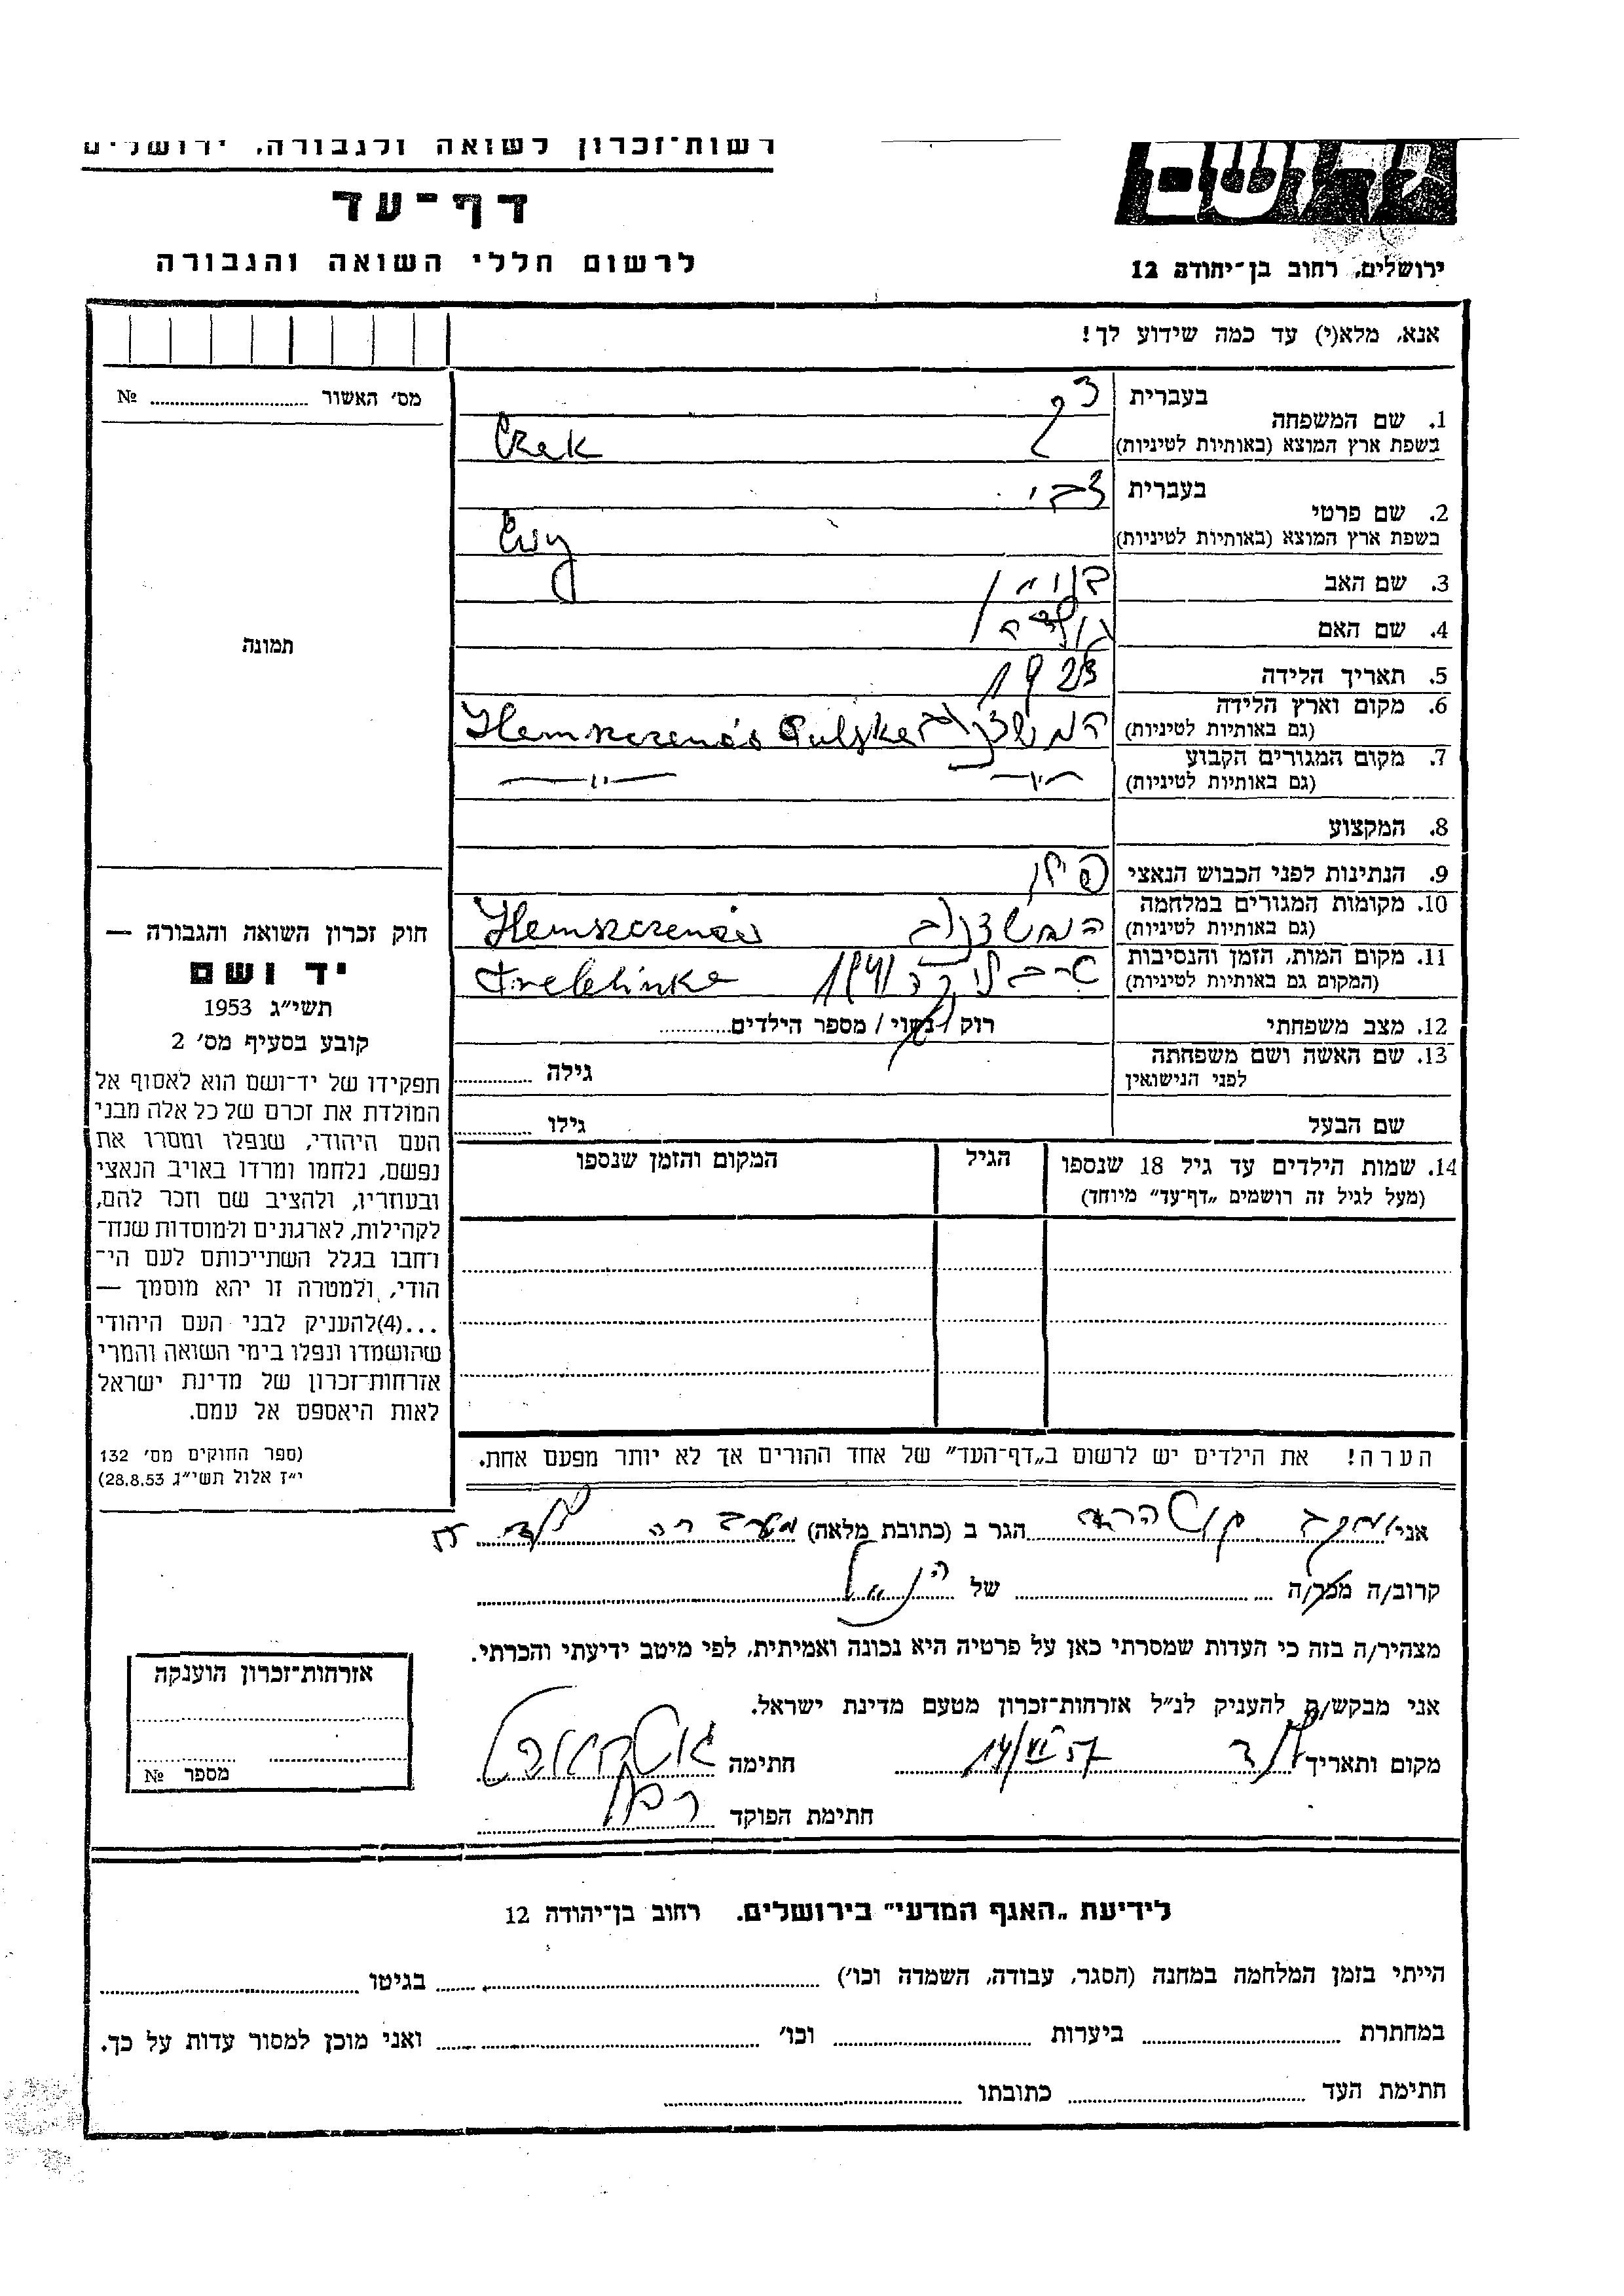 רשות־זכרון לשואה ולגבורה, ירושלים
דף־עד
לרשום חללי השואה והגבורה
ירושלים, רחוב בן־יהודה 12
אנא, מלא(י) עד כמה שידוע לך!
מס׳ האשור № 
1. שם המשפחה
בעברית
בשפת ארץ המוצא (באותיות לטיניות) Czek
2. שם פרטי
בעברית צבי
בשפת ארץ המוצא (באותיות לטיניות) Cwy
3. שם האב
4. שם האם
5. תאריך הלידה 1923
6. מקום וארץ הלידה
(גם באותיות לטיניות)
7. מקום המגורים הקבוע
(גם באותיות לטיניות) —״— —״—
8. המקצוע
9. הנתינות לפני הכבוש הנאצי פולן
10. מקומות המגורים במלחמה
(גם באותיות לטיניות)
11. מקום המות, הזמן והנסיבות
(המקום גם באותיות לטיניות) טרבלינקה 1941
12. מצב משפחתי רוק / נשוי / מספר הילדים
13. שם האשה ושם משפחתה
לפני הנישואין גילה
שם הבעל גילו
14. שמות הילדים עד גיל 18 שנספו
(מעל לגיל זה רושמים „דף־עד” מיוחד)
הגיל
המקום והזמן שנספו
הערה! את הילדים יש לרשום ב„דף־העד” של אחד ההורים אך לא יותר מפעם אחת.
תמונה
חוק זכרון השואה והגבורה —
יד ושם
תשי״ג 1953
קובע בסעיף מס׳ 2
תפקידו של יד־ושם הוא לאסוף אל
המולדת את זכרם של כל אלה מבני
העם היהודי, שנפלו ומסרו את
נפשם, נלחמו ומרדו באויב הנאצי
ובעוזריו, ולהציב שם וזכר להם,
לקהילות, לארגונים ולמוסדות שנח־
רחבו בגלל השתייכותם לעם הי־
הודי, ולמטרה זו יהא מוסמך —
...(4)להעניק לבני העם היהודי
שהושמדו ונפלו בימי השואה והמרי
אזרחות־זכרון של מדינת ישראל
לאות היאספם אל עמם.
(ספר החוקים מס׳ 132
י״ז אלול תשי״ג 28.8.53)
אני הגר ב (כתובת מלאה) מעברה לוד
קרוב/ה מכר/ה של הנ״ל
מצהיר/ה בזה כי העדות שמסרתי כאן על פרטיה היא נכונה ואמיתית, לפי מיטב ידיעתי והכרתי.
אני מבקש/ת להעניק לנ״ל אזרחות־זכרון מטעם מדינת ישראל.
מקום ותאריך לוד 14/VI 57 חתימה
חתימת הפוקד
אזרחות־זכרון הוענקה
מספר №
לידיעת „האגף המדעי” בירושלים. רחוב בן־יהודה 12
הייתי בזמן המלחמה במחנה (הסגר, עבודה, השמדה וכו׳) בגיטו
במחתרת ביערות וכו׳ ואני מוכן למסור עדות על כך.
חתימת העד כתובתו